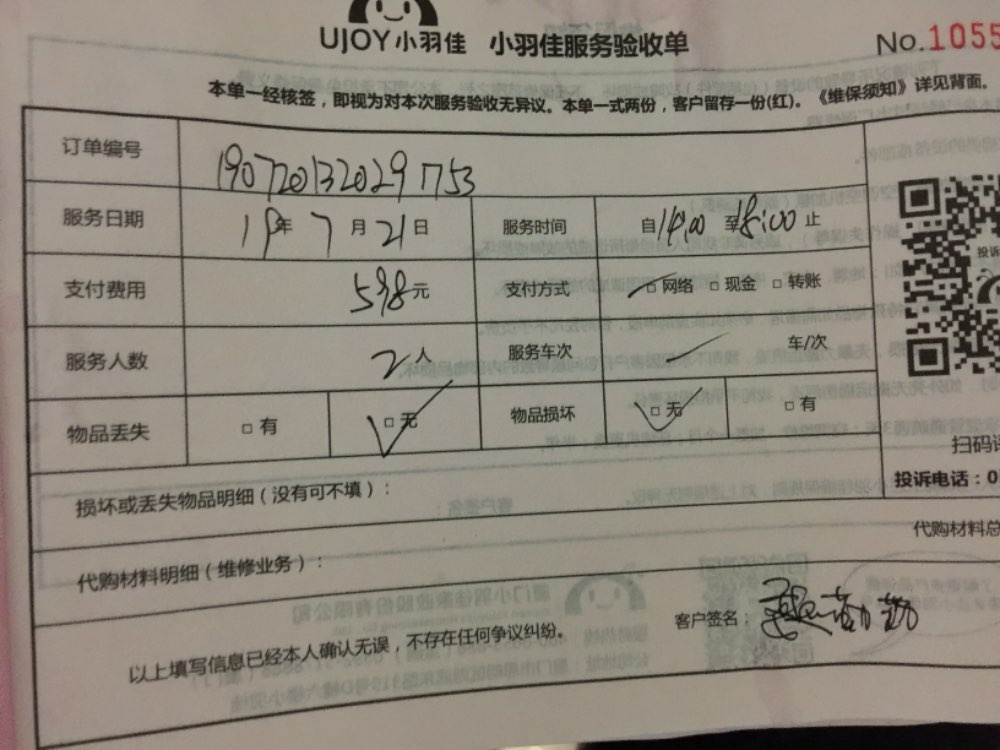 UJOY小羽佳 小羽佳服务验收单 No.1055
本单一经核签，即视为对本次服务验收无异议。本单一式两份，客户留存一份(红)。《维保须知》详见背面。
订单编号 190720132029753
服务日期 19年 7月21日 服务时间 自14:00至18:00止
支付费用 598元 支付方式 网络 现金 转账
服务人数 2人 服务车次 车/次
物品丢失 有 无 物品损坏 无 有
投诉
扫码
投诉电话：0
损坏或丢失物品明细（没有可不填）：
代购材料总
代购材料明细（维修业务）：
以上填写信息已经本人确认无误，不存在任何争议纠纷。 客户签名：